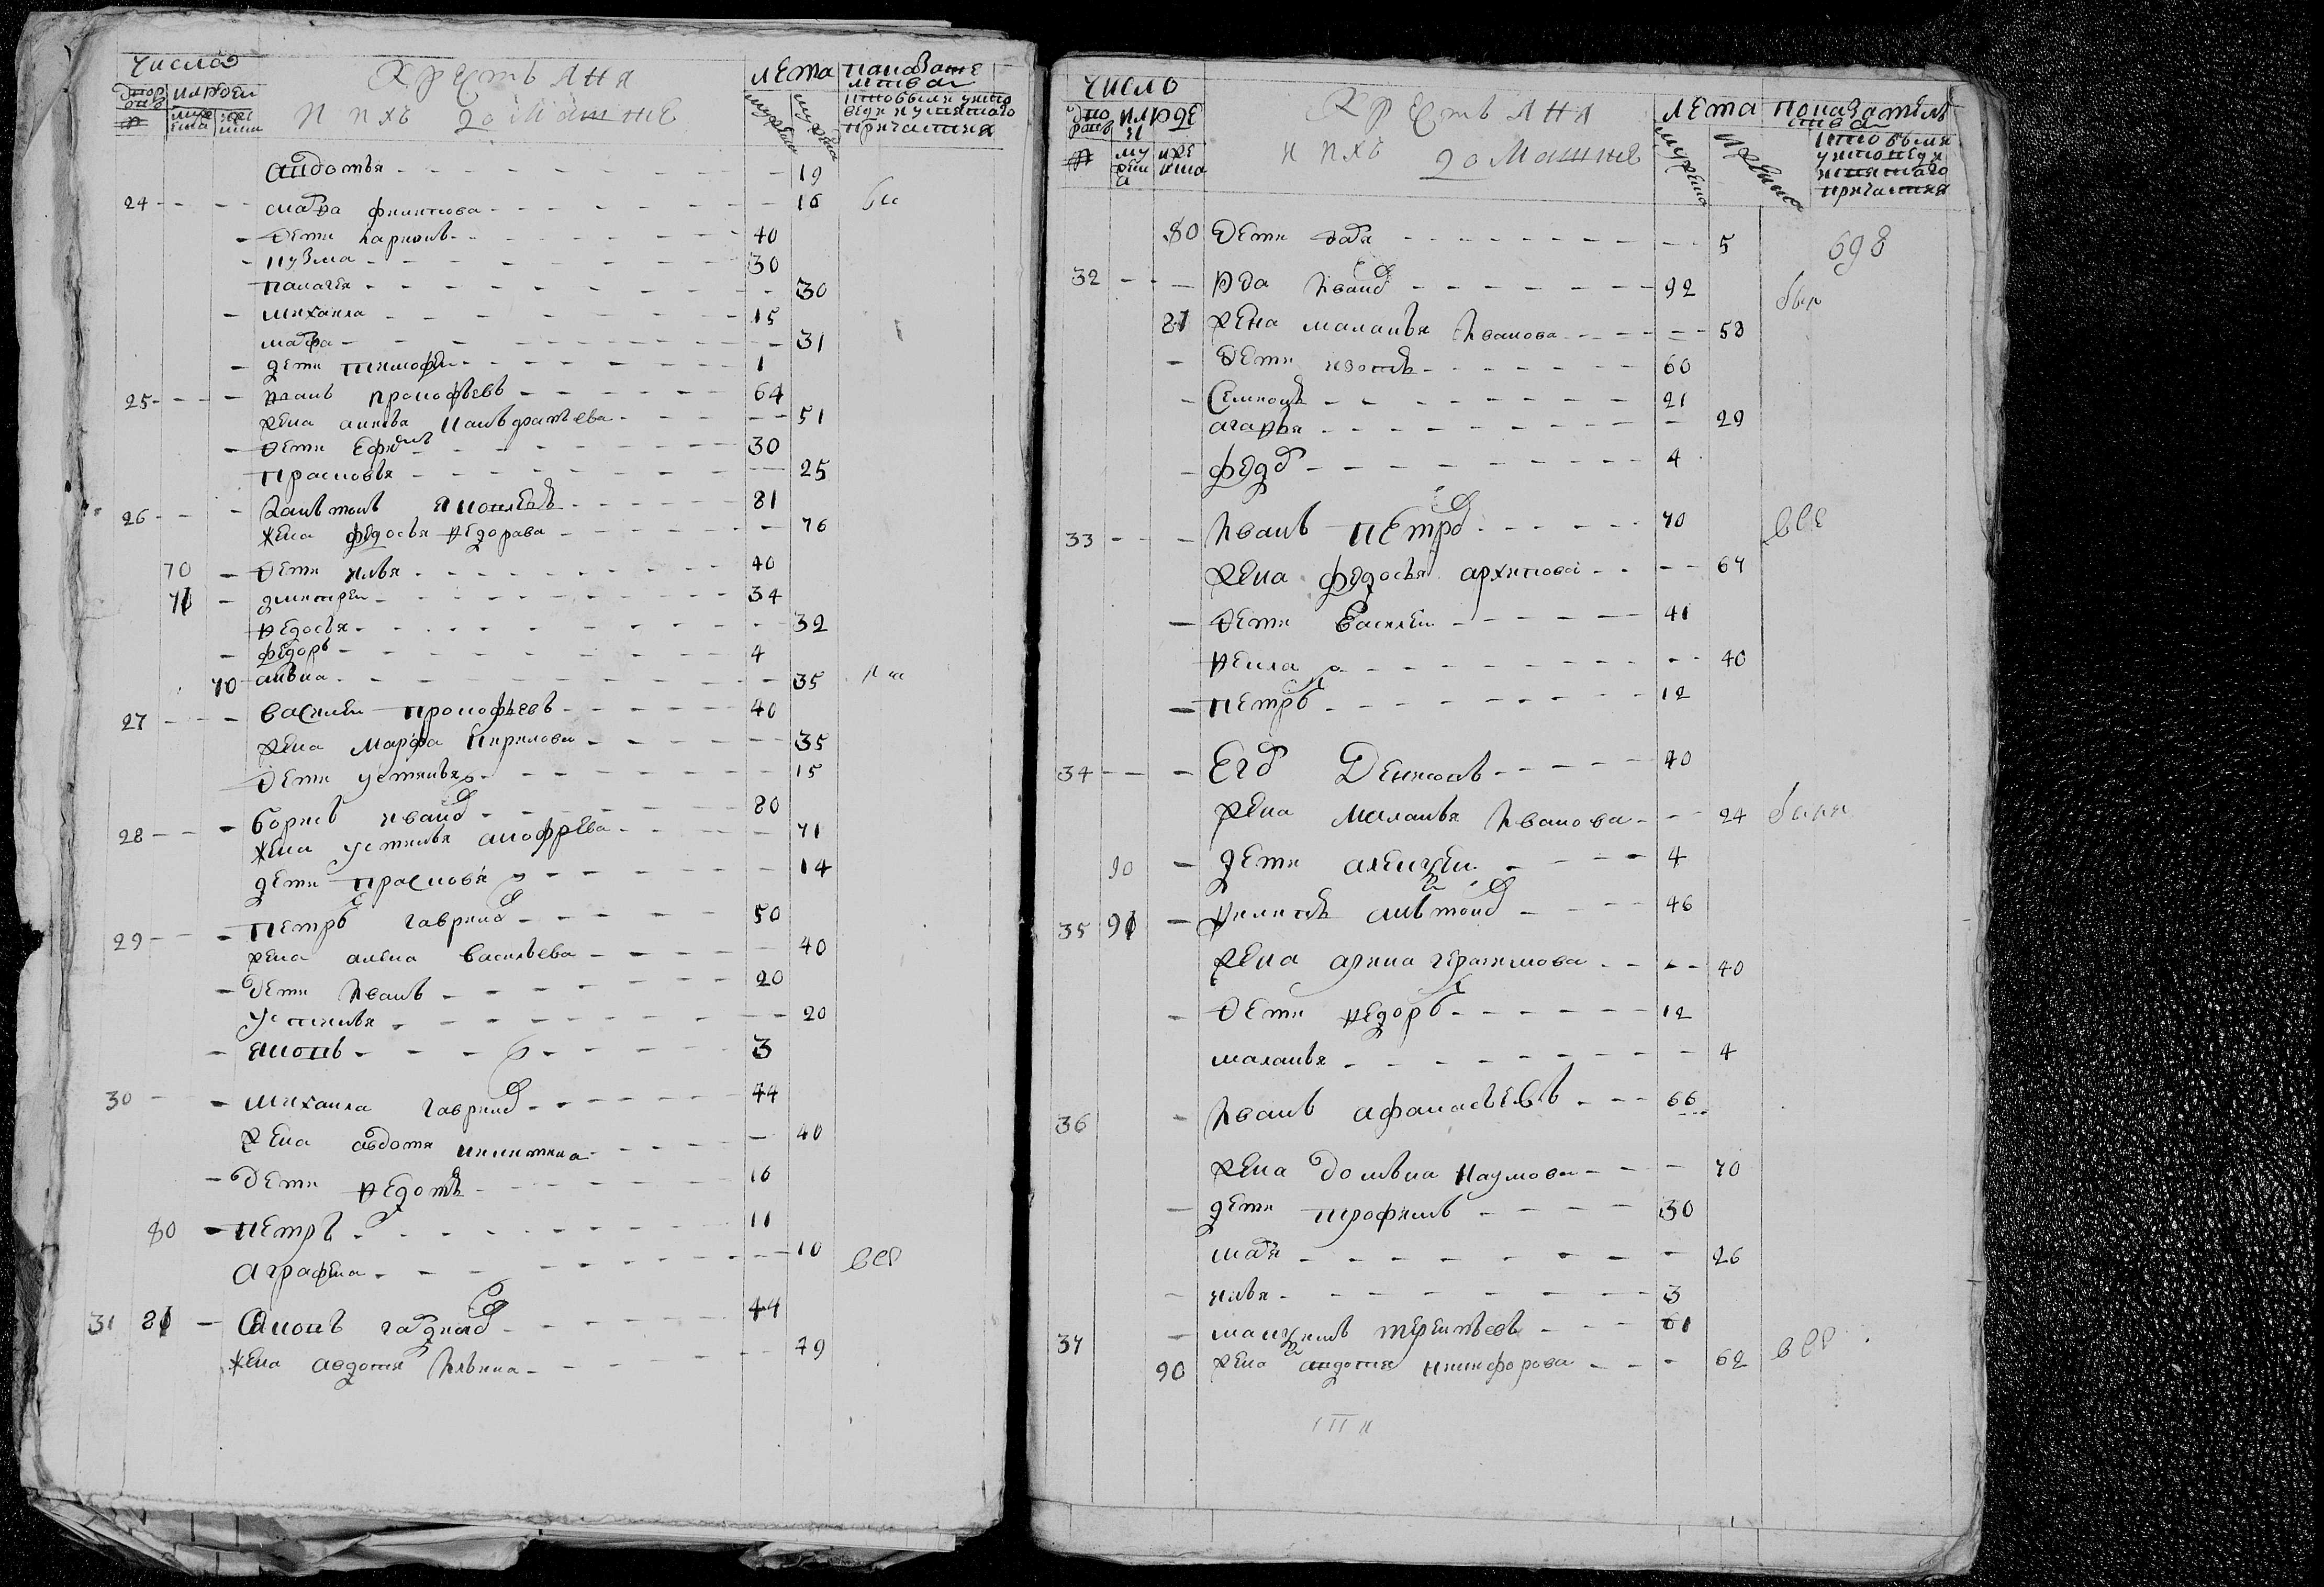 Числа
дворовъ
людей
мужеска
женска
Крестьяня
и ихъ домашние
Лета
мужеска
показателства
кто былъ у исповеди и у святаго причастия
авдотья 19
24 мавра филипова 16
дети карпъ 40
кузма 30
палагея 30
михаила 15
марфа 31
дети тимофеи 1
25 иванъ прокофьевъ 64
жена аннва 51
дети ефимъ 30
прасковья 25
26 81
жена федосья федорава 76
70 дети илья 40
71 дмитреи 34
федосья 32
федоръ 4
70 анна 35
27 василеи прокофьевъ 40
жена марфа кирилова 35
дети устинья 15
28 борисъ иванов 80
жена устинья анофрева 71
дети прасковя 14
29 петръ гаврилов 50
жена алена васильева 40
дети иванъ 20
устинья 20
3
30 михаила гаврилов 44
жена авдотя никитина 40
дети федотъ 16
80 петръ 11
аграфена 10 все
31 81 44
жена авдотия ильина 79
Число
дворовъ
людей
мужеска
женска
Крестьяня
и ихъ домашние
Лета
мужеска
женска
показателства
кто былъ у исповеди и святаго причастия
80 дети дарья 5 698
32 иванов 92 был
81 жена маланья иванова 58
дети изотъ 60
семионъ 21
агафья 29
федор 4
33 иванъ петров 70 все
жена федосья архипова 67
дети василеи 41
фекла 40
петръ 12
34 егор денисовъ 40
жена маланья иванова 24 были
90 дети алексеи 4
35 91 филипъ антонов 46
жена арина герасимова 40
дети федоръ 12
маланья 4
36 иванъ афанасьевъ 66
жена домна наумова 70
дети трофимъ 30
марья 26
илья 3
37 максимъ терентьевъ 61
90 жена авдотия никифорова 62 все